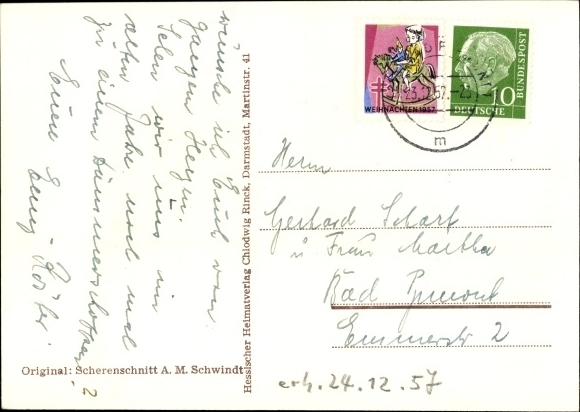 wünsche ich Euch von
ganzem Herzen.
Sehen wir uns im
alten Jahre noch mal
zu einem Dämmerschoppen?
Euer
Original: Scherenschnitt A. M. Schwindt
Hessischer Heimatverlag Chlodwig Rinck, Darmstadt, Martinstr. 41
WEIHNACHTEN 1957
DEUTSCHE
BUNDESPOST
10
23.12.57
m
Herrn
Gerhard Scharf
u Frau Martha
Bad Pyrmont
Emmerstr 2
erh. 24.12.57